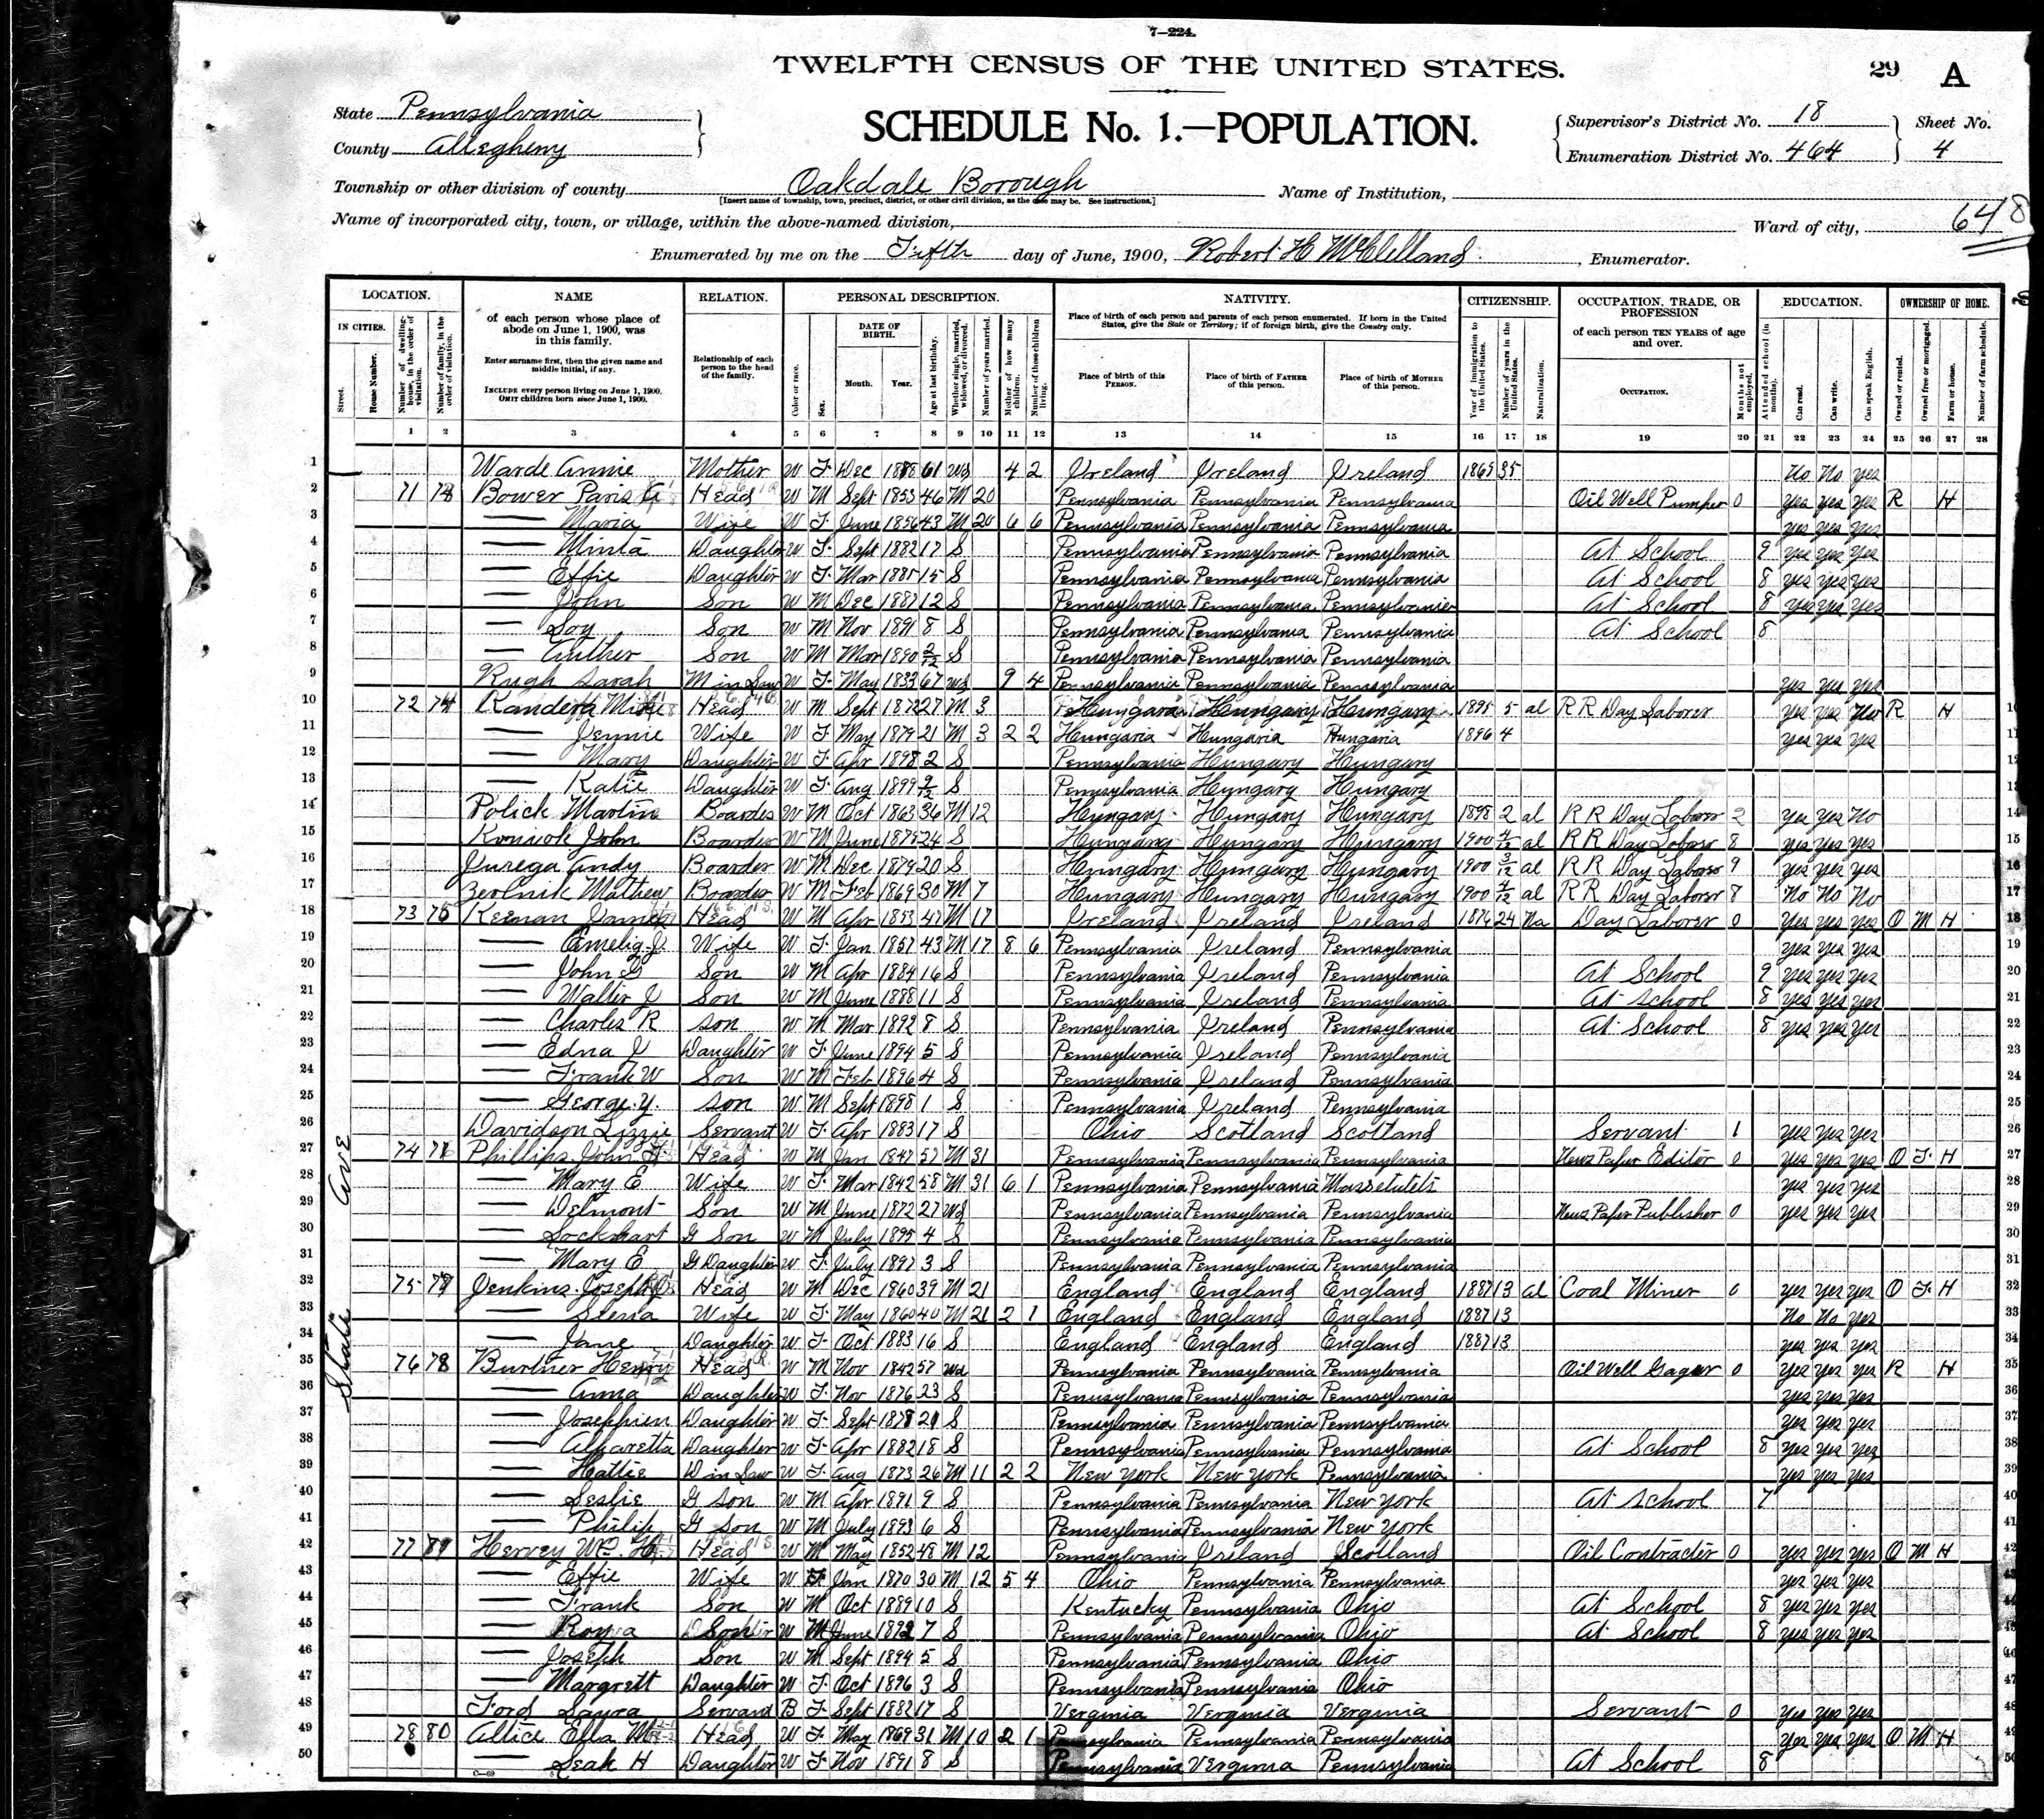 7—224.
TWELFTH CENSUS OF THE UNITED STATES.
29 A
State Pennsylvania
County Allegheny
SCHEDULE No. 1.—POPULATION.
Supervisor's District No. 18
Enumeration District No. 464
Sheet No. 4
Township or other division of county Oakdale Borough
[Insert name of township, town, precinct, district, or other civil division, as the case may be. See instructions.]
Name of Institution,
Name of incorporated city, town, or village, within the above-named division,
Ward of city,
648
Enumerated by me on the Fifth day of June, 1900, Robert H McClelland, Enumerator.
LOCATION. NAME RELATION. PERSONAL DESCRIPTION. NATIVITY. CITIZENSHIP. OCCUPATION, TRADE, OR PROFESSION EDUCATION. OWNERSHIP OF HOME.
IN CITIES. Street. House Number. Number of dwelling-house, in the order of visitation. Number of family, in the order of visitation.
of each person whose place of abode on June 1, 1900, was in this family.
Enter surname first, then the given name and middle initial, if any.
INCLUDE every person living on June 1, 1900. OMIT children born since June 1, 1900.
Relationship of each person to the head of the family.
Color or race. Sex. DATE OF BIRTH. Month. Year. Age at last birthday. Whether single, married, widowed, or divorced. Number of years married. Mother of how many children. Number of these children living.
Place of birth of each person and parents of each person enumerated. If born in the United States, give the State or Territory; if of foreign birth, give the Country only.
Place of birth of this PERSON. Place of birth of FATHER of this person. Place of birth of MOTHER of this person.
Year of immigration to the United States. Number of years in the United States. Naturalization.
of each person TEN YEARS of age and over.
OCCUPATION. Months not employed.
Attended school (in months). Can read. Can write. Can speak English.
Owned or rented. Owned free or mortgaged. Farm or house. Number of farm schedule.
1 2 3 4 5 6 7 8 9 10 11 12 13 14 15 16 17 18 19 20 21 22 23 24 25 26 27 28
1 Warde Annie Mother W F Dec 61 Wd 4 2 Ireland Ireland Ireland 1865 35 No No yes
2 71 Bower Paris G Head W M Sept 1853 46 M 20 Pennsylvania Pennsylvania Pennsylvania Oil Well Pumper 0 yes yes yes R H
3 — Maria Wife W F June 1856 43 M 20 6 6 Pennsylvania Pennsylvania Pennsylvania yes yes yes
4 — Minta Daughter W F Sept 1882 17 S Pennsylvania Pennsylvania Pennsylvania At School 9 yes yes yes
5 — Effie Daughter W F Mar 1885 15 S Pennsylvania Pennsylvania Pennsylvania At School 8 yes yes yes
6 — John Son W M Dec 1887 12 S Pennsylvania Pennsylvania Pennsylvania At School 8 yes yes yes
7 — Son W M Nov 1891 8 S Pennsylvania Pennsylvania Pennsylvania At School 8
8 — Son W M Mar 1890 2/12 S Pennsylvania Pennsylvania Pennsylvania
9 Rugh Sarah M in Law W F May 1833 67 Wd 9 4 Pennsylvania Pennsylvania Pennsylvania yes yes yes
10 72 74 Mike Head W M Sept 1872 27 M 3 Hungary Hungary 1895 5 al R R Day Laborer yes yes No R H
11 — Jennie Wife W F May 1879 21 M 3 2 2 Hungaria Hungaria Hungaria 1896 4 yes yes yes
12 — Mary Daughter W F Apr 1898 2 S Pennsylvania Hungary Hungary
13 — Katie Daughter W F Aug 1899 9/12 S Pennsylvania Hungary Hungary
14 Polick Martin Boarder W M Oct 1863 36 M 12 Hungary Hungary Hungary 1898 2 al R R Day Laborer 2 yes yes No
15 John Boarder W M June 1875 24 S Hungary Hungary Hungary 1900 4/12 al R R Day Laborer 8 yes yes yes
16 Jurega Andy Boarder W M Dec 1879 20 S Hungary Hungary Hungary 1900 3/12 al R R Day Laborer 9 yes yes yes
17 Zerlnik Mathew Boarder W M Feb 1869 30 M 7 Hungary Hungary Hungary 1900 4/12 al R R Day Laborer 8 No No No
18 73 75 Keenan James Head W M Apr 1853 47 M 17 Ireland Ireland Ireland 1876 24 Na Day Laborer 0 yes yes yes O M H
19 — Emelia J Wife W F Jan 1857 43 M 17 8 6 Pennsylvania Ireland Pennsylvania yes yes yes
20 — John G Son W M Apr 1884 16 S Pennsylvania Ireland Pennsylvania At School 9 yes yes yes
21 — Walter J Son W M June 1888 11 S Pennsylvania Ireland Pennsylvania At School 8 yes yes yes
22 — Charles R Son W M Mar 1892 8 S Pennsylvania Ireland Pennsylvania At School 8 yes yes yes
23 — Edna J Daughter W F June 1894 5 S Pennsylvania Ireland Pennsylvania
24 — Frank W Son W M Feb 1896 4 S Pennsylvania Ireland Pennsylvania
25 — George Y. Son W M Sept 1898 1 S Pennsylvania Ireland Pennsylvania
26 Davidson Lizzie Servant W F Apr 1883 17 S Ohio Scotland Scotland Servant 1 yes yes yes
27 74 Phillips John Head W M Jan 1847 53 M 31 Pennsylvania Pennsylvania Pennsylvania News Paper Editor 0 yes yes yes O F H
28 — Mary E Wife W F Mar 1842 58 M 31 6 1 Pennsylvania Pennsylvania Massetutets yes yes yes
29 — Delmont Son W M June 1872 27 Wd Pennsylvania Pennsylvania Pennsylvania News Paper Publisher 0 yes yes yes
30 — Lockhart G Son W M July 1895 4 S Pennsylvania Pennsylvania Pennsylvania
31 — Mary E G Daughter W F July 1897 3 S Pennsylvania Pennsylvania Pennsylvania
32 75 Jenkins Joseph Head W M Dec 1860 39 M 21 England England England 1887 13 al Coal Miner 0 yes yes yes O F H
33 — Wife W F May 1860 40 M 21 2 1 England England England 1887 13 No No yes
34 — Jane Daughter W F Oct 1883 16 S England England England 1887 13 yes yes yes
35 76 78 Burtner Henry Head W M Nov 1842 57 Wd Pennsylvania Pennsylvania Pennsylvania Oil Well Gager 0 yes yes yes R H
36 — Anna Daughter W F Nov 1876 23 S Pennsylvania Pennsylvania Pennsylvania yes yes yes
37 — Josephien Daughter W F Sept 1878 21 S Pennsylvania Pennsylvania Pennsylvania yes yes yes
38 — Alfaretta Daughter W F Apr 1882 18 S Pennsylvania Pennsylvania Pennsylvania At School 8 yes yes yes
39 — Hattie D in Law W F Aug 1873 26 M 11 2 2 New York New York Pennsylvania yes yes yes
40 — Leslie G Son W M Apr 1891 9 S Pennsylvania Pennsylvania New York At School 7
41 — Philip G Son W M July 1893 6 S Pennsylvania Pennsylvania New York
42 77 Hervey Wm. H Head W M May 1852 48 M 12 Pennsylvania Ireland Scotland Oil Contracter 0 yes yes yes O M H
43 — Effie Wife W F Jan 1870 30 M 12 5 4 Ohio Pennsylvania Pennsylvania yes yes yes
44 — Frank Son W M Oct 1889 10 S Kentucky Pennsylvania Ohio At School 8 yes yes yes
45 — W M June 1892 7 S Pennsylvania Pennsylvania Ohio At School 8 yes yes yes
46 — Joseph Son W M Sept 1894 5 S Pennsylvania Pennsylvania Ohio
47 — Margrett Daughter W F Oct 1896 3 S Pennsylvania Pennsylvania Ohio
48 Ford Servant B F Sept 1882 17 S Verginia Verginia Verginia Servant 0 yes yes yes
49 78 80 Altice Ella M Head W F May 1869 31 M 10 2 1 Pennsylvania Pennsylvania Pennsylvania yes yes yes O M H
50 — Leah H Daughter W F Nov 1891 8 S Pennsylvania Verginia Pennsylvania At School 8
State Ave